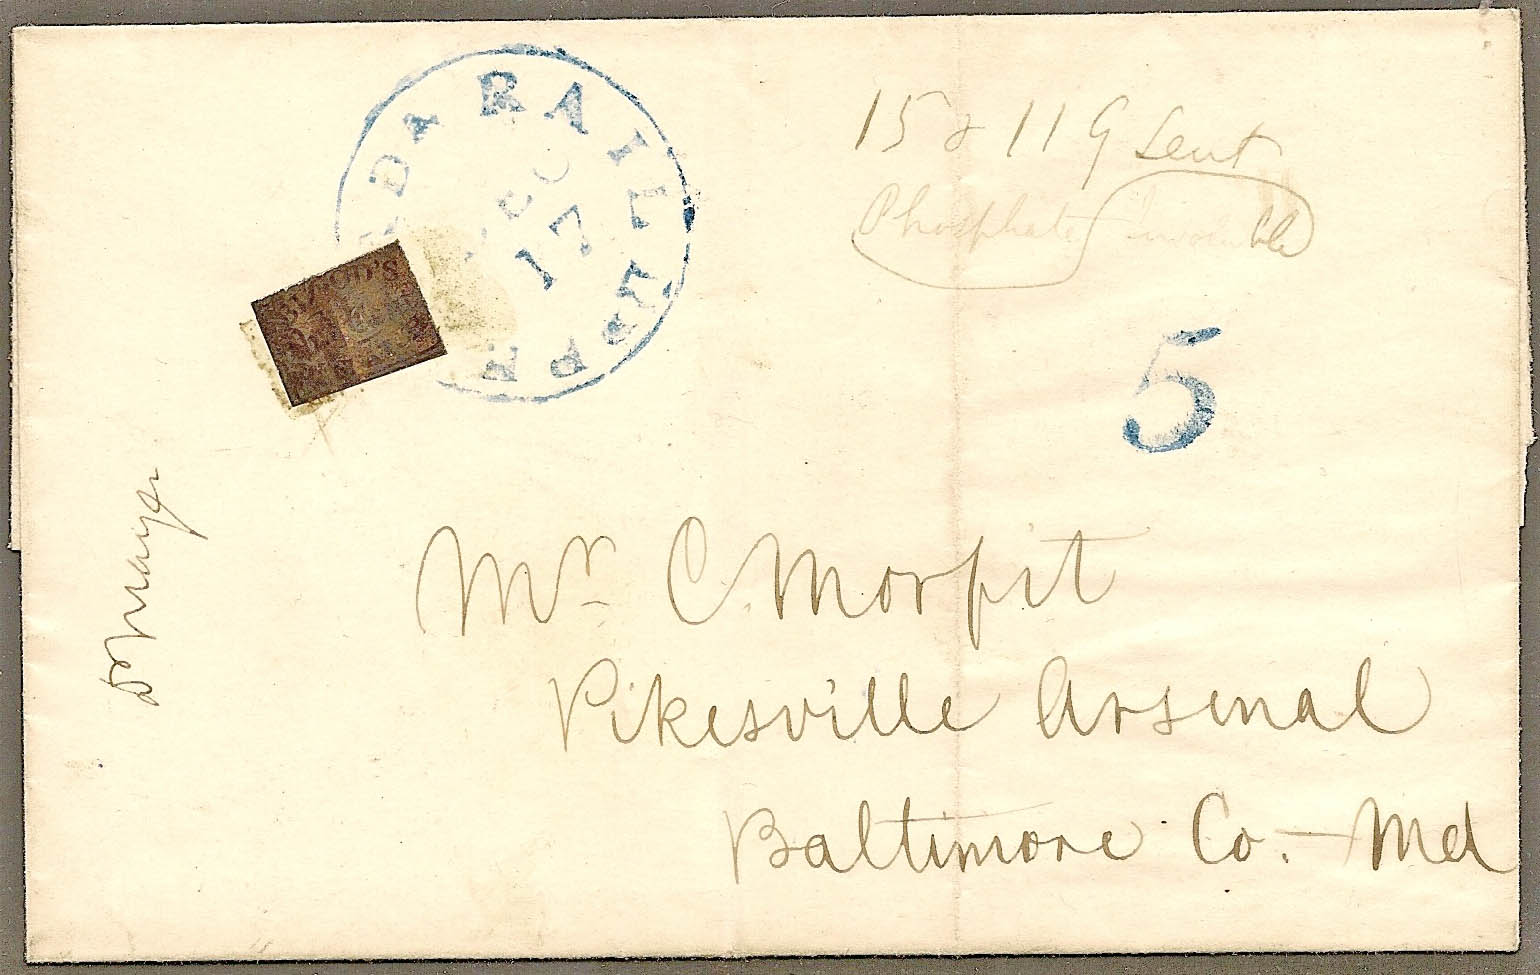 PHILADA RAIL R.
DEC
17
BOYD'S
15 & 11 G Sent
Phosphate
5
Dr Mayer
Mr. C. Morfit
Pikesville Arsenal
Baltimore Co. — Md